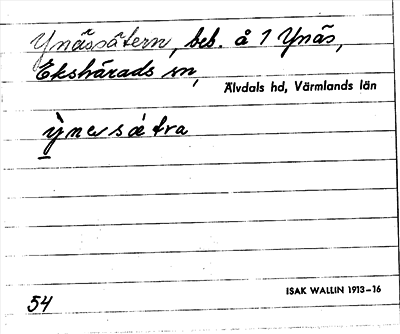 Ynässätern, beb. å 1 Ynäs,
Ekshärads sn,
Älvdals hd, Värmlands län
ỳnessætra
ISAK WALLIN 1913–16
54